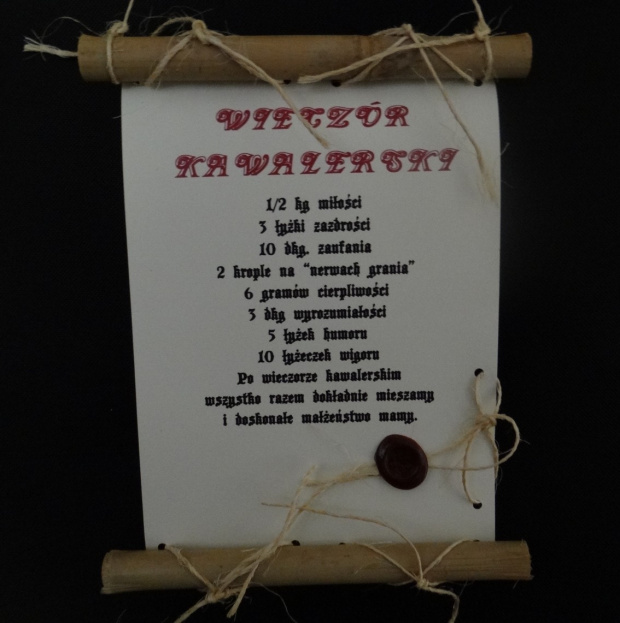 WIECZÓR
KAWALERSKI
1/2 kg miłości
3 łyżki zazdrości
10 dkg. zaufania
2 krople na "nerwach grania"
6 gramów cierpliwości
3 dkg wyrozumiałości
5 łyżek humoru
10 łyżeczek wigoru
Po wieczorze kawalerskim
wszystko razem dokładnie mieszamy
i doskonałe małżeństwo mamy.